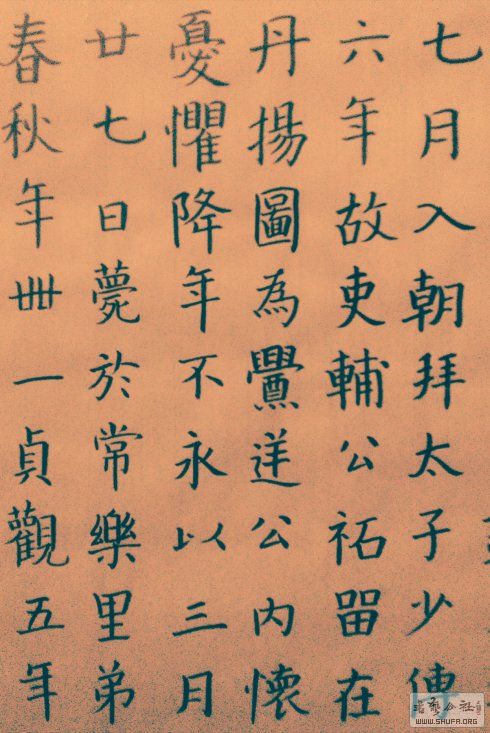 七月入朝拜太子少傅
六年故吏輔公祏留在
丹揚圖為釁逆公内懷
憂懼降年不永以三月
廿七日薨於常樂里弟
春秋年卌一貞觀五年
WWW.SHUFA.ORG